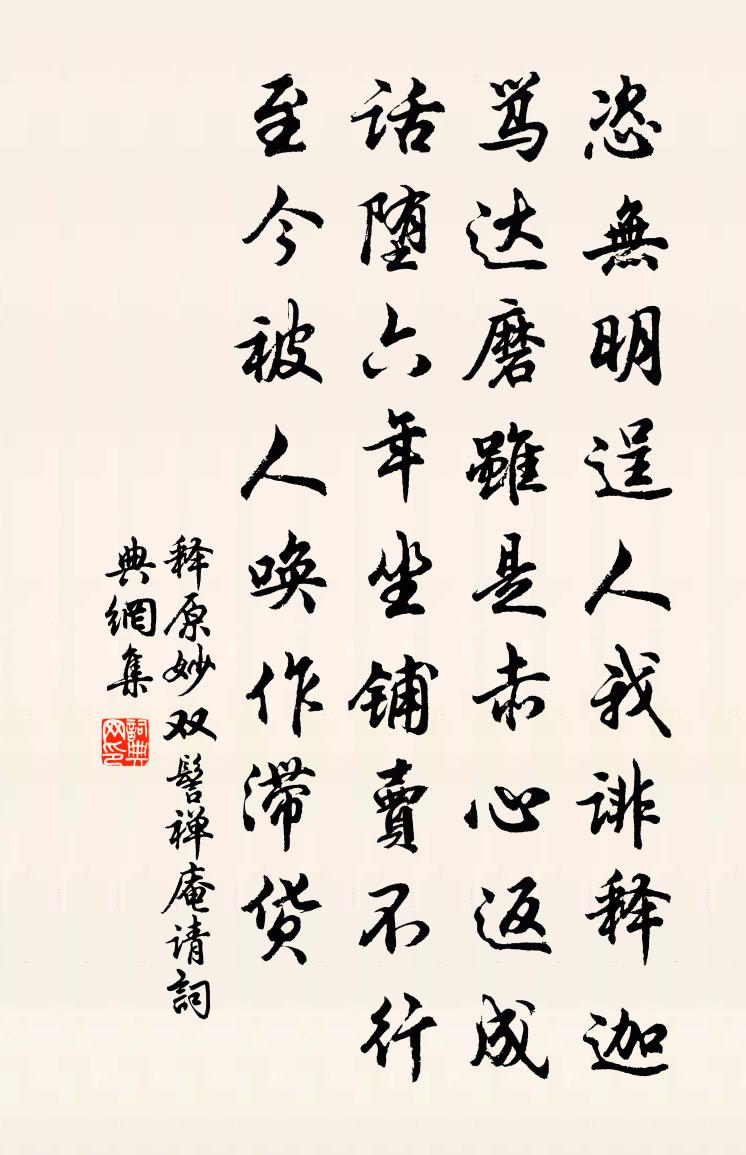 恣無明逞人我誹释迦
骂达磨雖是赤心返成
话堕六年坐铺賣不行
至今被人唤作滞货
释原妙双髻禅庵请詞
典網集
詞典网印